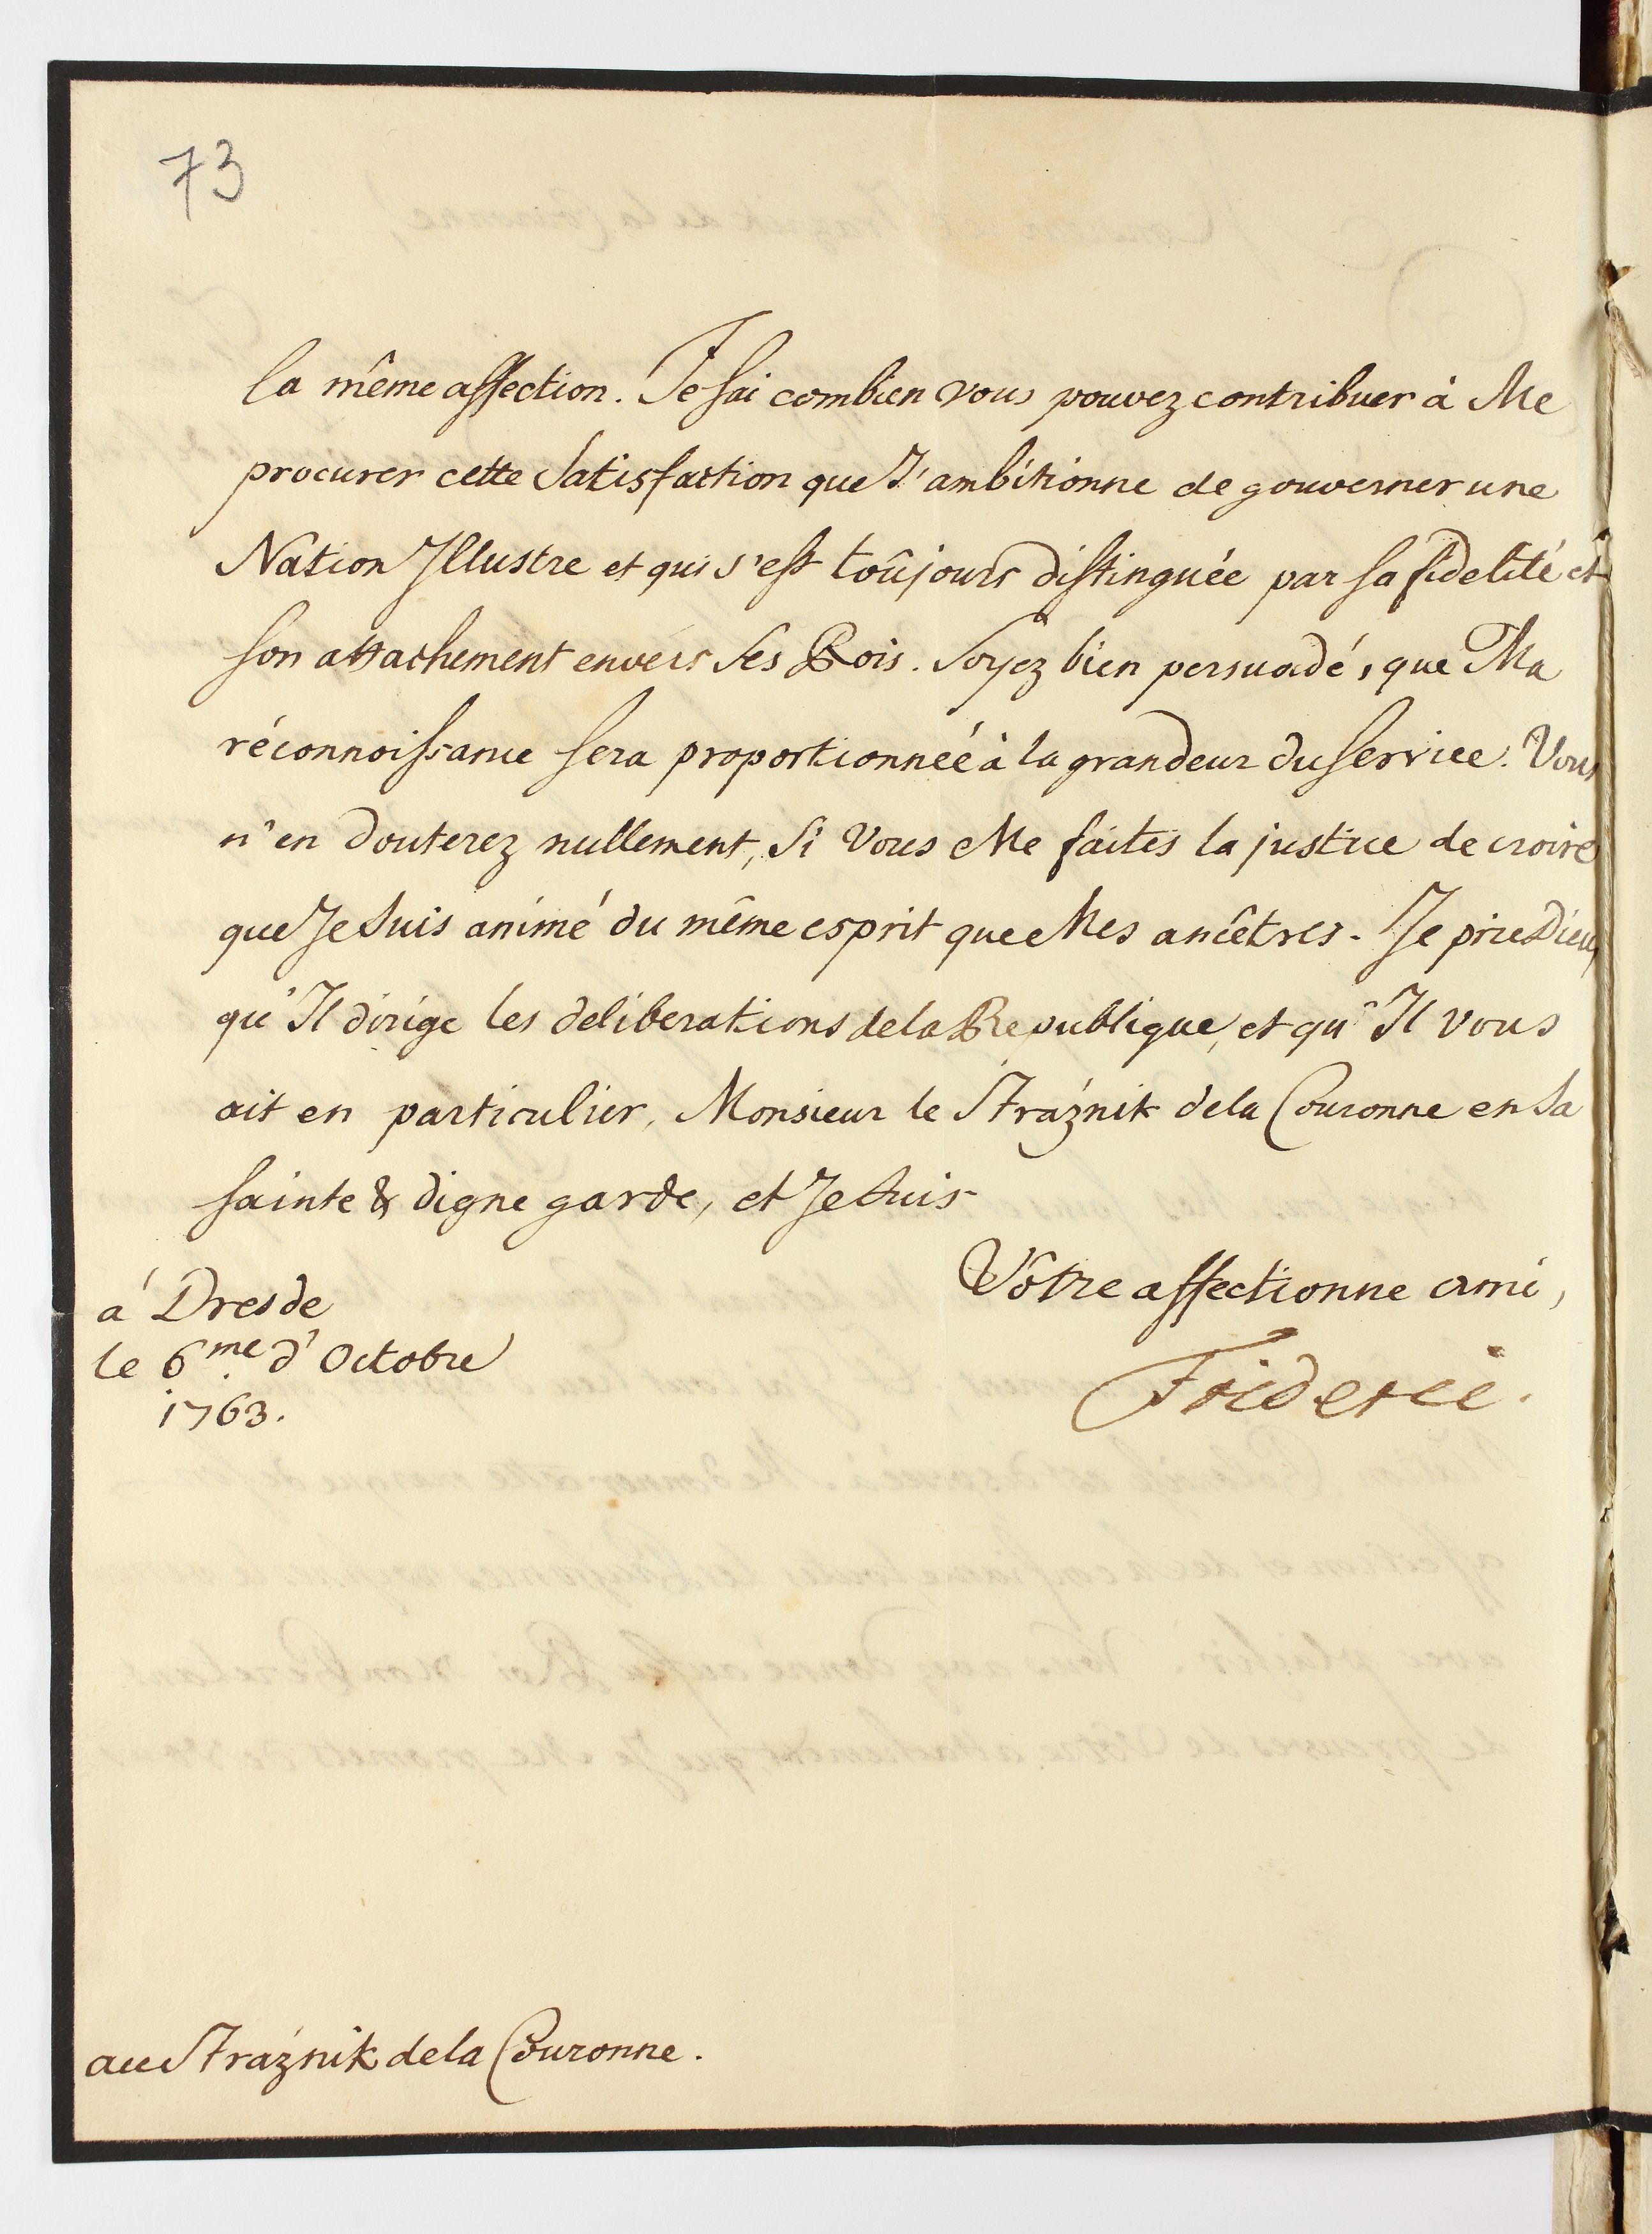 73
la même affection. Je sai combien vous pouvez contribuer à Me
procurer cette Satisfaction que J'ambitionne de gouverner une
Nation Illustre et qui s'est toûjours distinguée par sa fidelité et
son attachement envers ses Rois. Soyez bien persuadé, que Ma
réconnoissance sera proportionnée à la grandeur du service. Vous
n'en douterez nullement, Si Vous Me faites la justice de croire
que Je suis animé du même esprit que Mes ancêtres. Je prie Dieu,
qu'Il dirige les deliberations de la Republique, et qu'Il vous
ait en particulier, Monsieur le Straźnik de la Couronne en Sa
sainte & digne garde, et Je suis
Vôtre affectionne ami,
à Dresde
le 6me d'Octobre
1763.
Frideric.
au Straźnik de la Couronne.